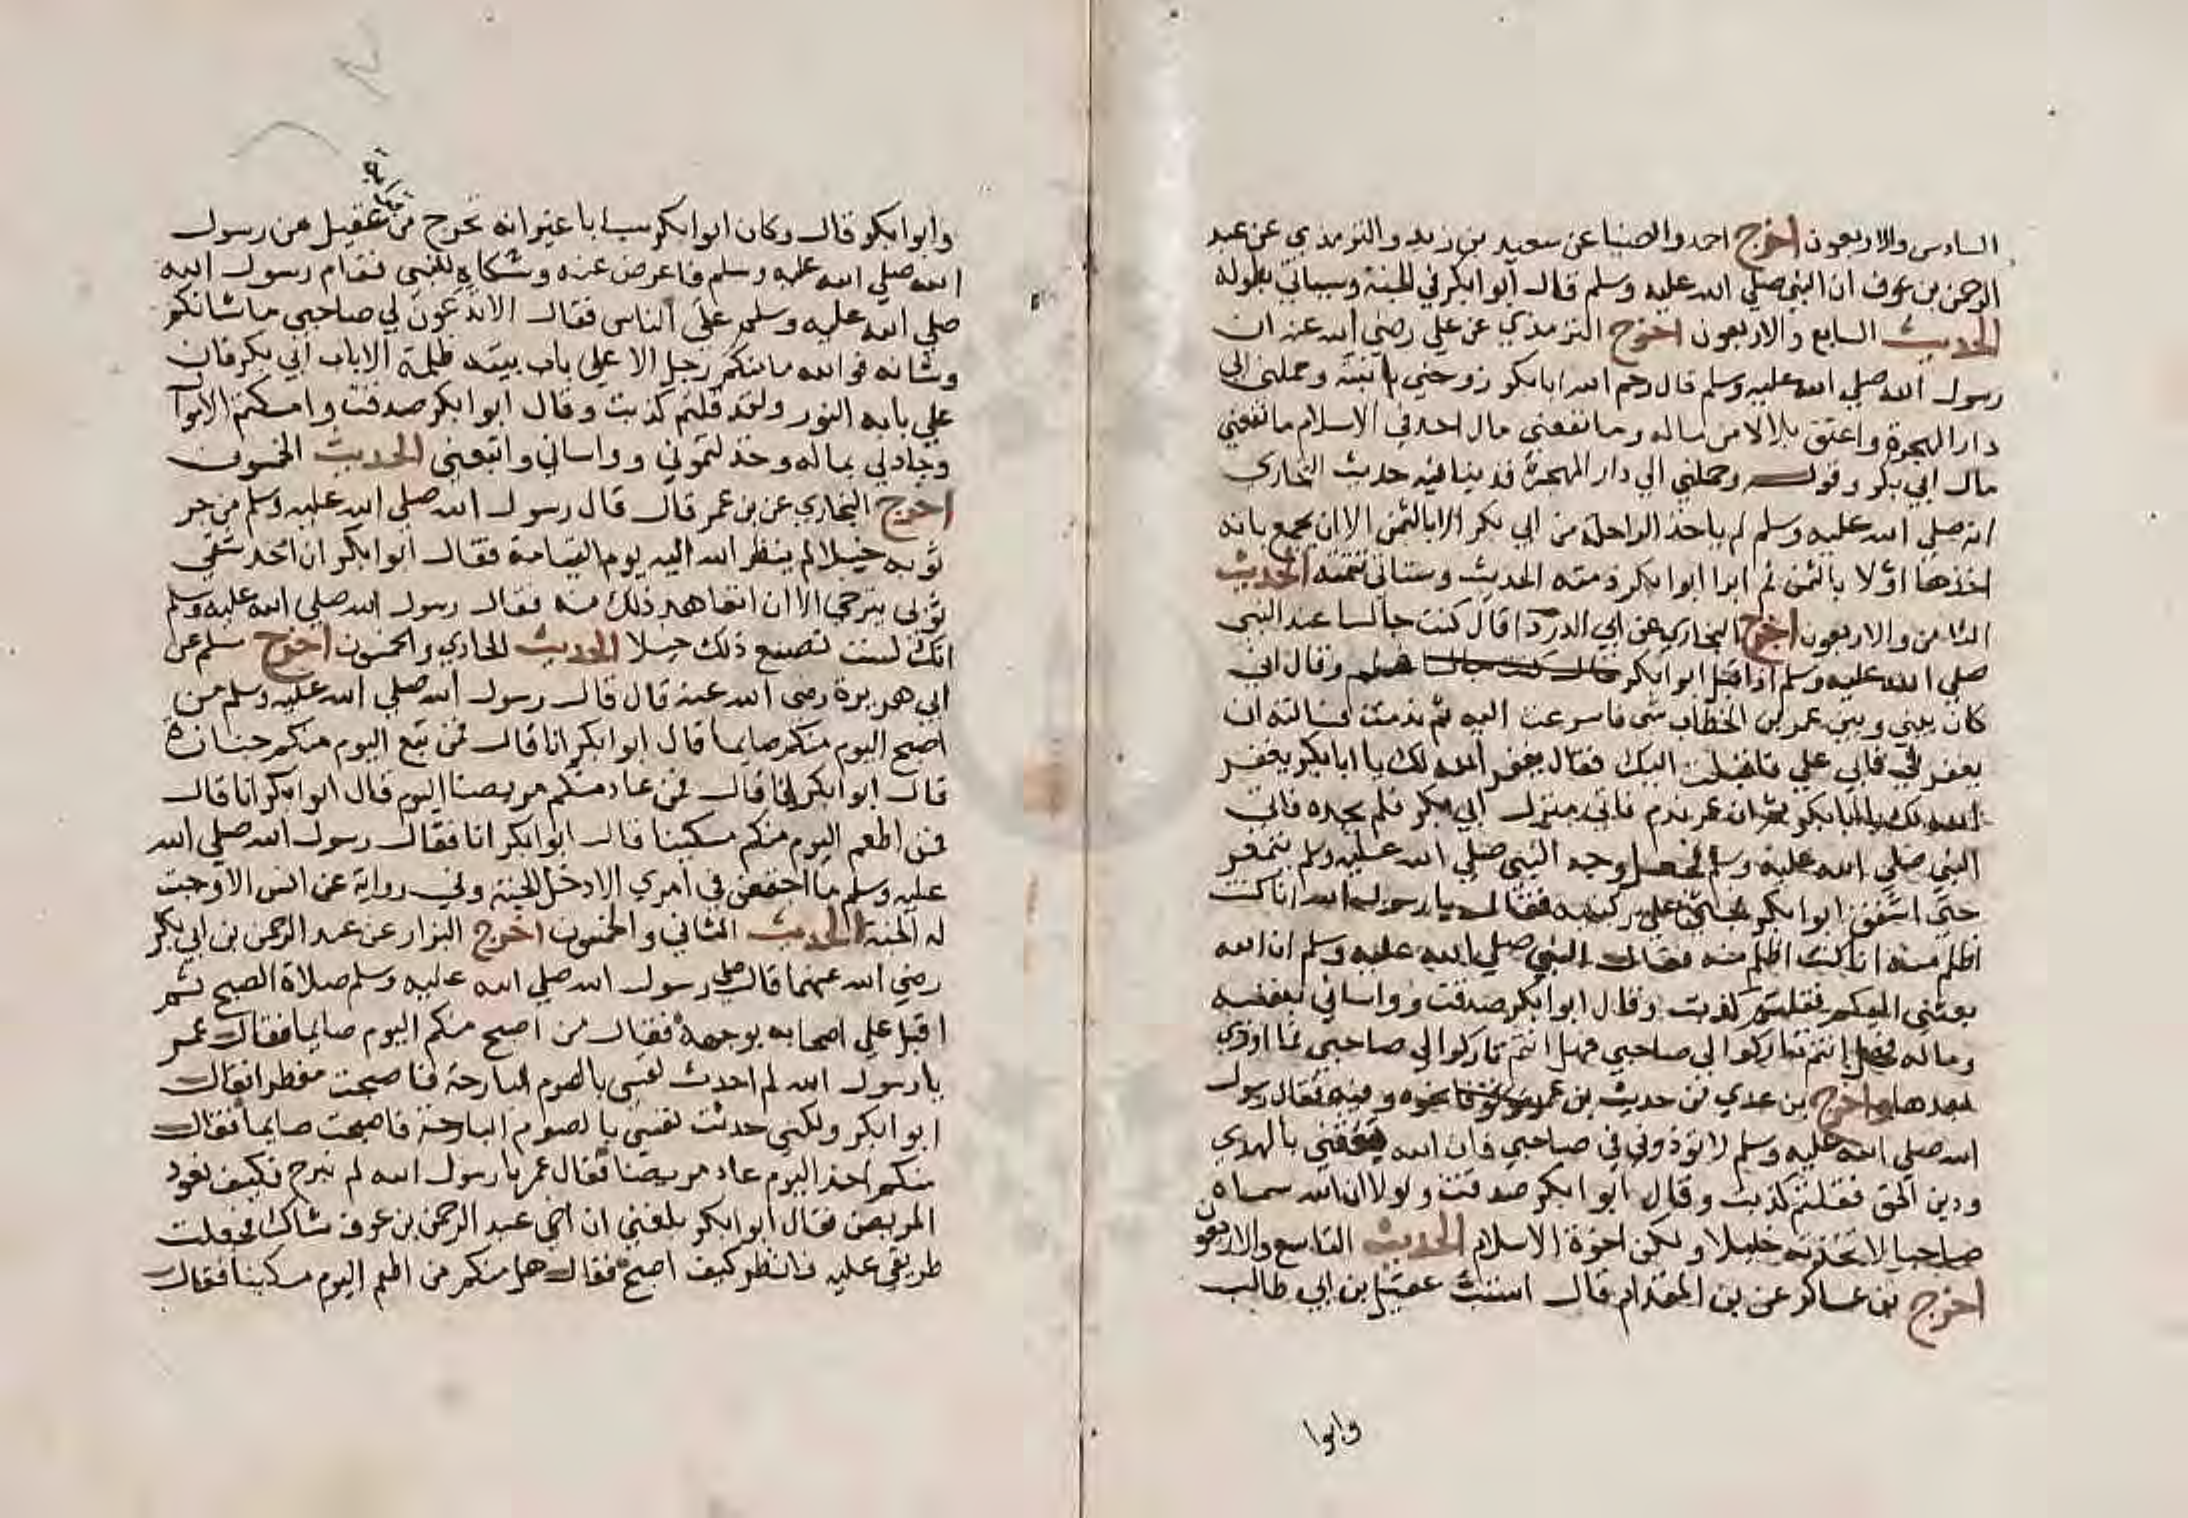 السادس والاربعون اخرج احمد والضيا عن سعيد بن زيد والترمذي عن عبد
الرحمن بن عوف ان النبي صلي الله عليه وسلم قال ابوابكر في الجنة وسياتي بطوله
الحديث السابع والاربعون اخرج الترمذي عن علي رضي الله عنه ان
رسول الله صلي الله عليه وسلم قال رحم الله ابابكر زوجني بابنته وحملني الي
دار الهجرة واعتق بلالا من ماله وما نفعني مال احد في الاسلام ما نفعني
مال ابي بكر وقوله وحملني الي دار الهجرة قد ينافيه حديث البخاري
انه صلي الله عليه وسلم لم ياخذ الراحلة من ابي بكر الا بالثمن الا ان يجمع بانه
اخذها اولا بالثمن ثم ابرا ابوابكر ذمته الحديث وستاتي تتمته الحديث
الثامن والاربعون اخرج البخاري عن ابي الدردا قال كنت جالسا عند النبي
صلي الله عليه وسلم اذ اقبل ابوابكر فسلم وقال اني
كان بيني وبين عمر بن الخطاب شي فاسرعت اليه ثم ندمت فسالته ان
يغفر لي فابي علي فاقبلت اليك فقال يغفر الله لك يا ابابكر يغفر
الله لك يا ابابكر ثم ان عمر ندم فاتي منزل ابي بكر فلم يجده فاتي
النبي صلي الله عليه وسلم فجعل وجه النبي صلي الله عليه وسلم يتمعر
حتي اشفق ابوابكر فجثي علي ركبتيه فقال يا رسول الله انا كنت
اظلم منه انا كنت اظلم منه فقال النبي صلي الله عليه وسلم ان الله
بعثني اليكم فقلتم كذبت وقال ابوابكر صدقت وواساني بنفسه
وماله فهل انتم تاركوا لي صاحبي فهل انتم تاركوا لي صاحبي فما اوذي
بعدها واخرج بن عدي من حديث بن عمر نحوه وفيه فقال رسول
الله صلي الله عليه وسلم لا توذوني في صاحبي فان الله بعثني بالهدي
ودين الحق فقلتم كذبت وقال ابوابكر صدقت ولولا ان الله سماه
صاحبا لاتخذته خليلا ولكن اخوة الاسلام الحديث التاسع والاربعون
اخرج بن عساكر عن بن المقدام قال استب عقيل بن ابي طالب
وابوا
وابوابكر قال وكان ابوابكر سبابا غير انه تحرج من قرابة عقيل من رسول
الله صلي الله عليه وسلم فاعرض عنه وشكاه للنبي فقام رسول الله
صلي الله عليه وسلم علي الناس فقال الا تدعون لي صاحبي ما شانكم
وشانه فوالله ما منكم رجل الا علي باب بيته ظلمة الا باب ابي بكر فان
علي بابه النور ولقد قلتم كذبت وقال ابوابكر صدقت وامسكتم الاموا
وجاد لي بماله وخذلتموني وواساني واتبعني الحديث الخمسون
اخرج البخاري عن بن عمر قال قال رسول الله صلي الله عليه وسلم من جر
ثوبه خيلا لم ينظر الله اليه يوم القيامة فقال ابوابكر ان احد شقي
ثوبي يسترخي الا ان اتعاهد ذلك منه فقال رسول الله صلي الله عليه وسلم
انك لست تصنع ذلك خيلا الحديث الحادي والخمسون اخرج مسلم عن
ابي هريرة رضي الله عنه قال قال رسول الله صلي الله عليه وسلم من
اصبح اليوم منكم صايما قال ابوابكر انا قال فمن تبع اليوم منكم جنازة
قال ابوابكر انا قال فمن عاد منكم مريضا اليوم قال ابوابكر انا قال
فمن اطعم اليوم منكم مسكينا قال ابوابكر انا فقال رسول الله صلي الله
عليه وسلم ما اجتمعن في امري الا دخل الجنة وفي رواية عن انس الا وجبت
له الجنة الحديث الثاني والخمسون اخرج البزار عن عبد الرحمن بن ابي بكر
رضي الله عنهما قال صلي رسول الله صلي الله عليه وسلم صلاة الصبح ثم
اقبل علي اصحابه بوجهه فقال من اصبح منكم اليوم صايما فقال عمر
يا رسول الله لم احدث نفسي بالصوم البارحة فاصبحت مفطرا فقال
ابوابكر ولكني حدثت نفسي بالصوم البارحة فاصبحت صايما فقال
منكم احد اليوم عاد مريضا فقال عمر يا رسول الله لم نبرح فكيف نعود
المريض فقال ابوابكر بلغني ان اخي عبد الرحمن بن عوف شاك فجعلت
طريقي عليه فانظر كيف اصبح فقال هل منكم من اطعم اليوم مسكينا فقال